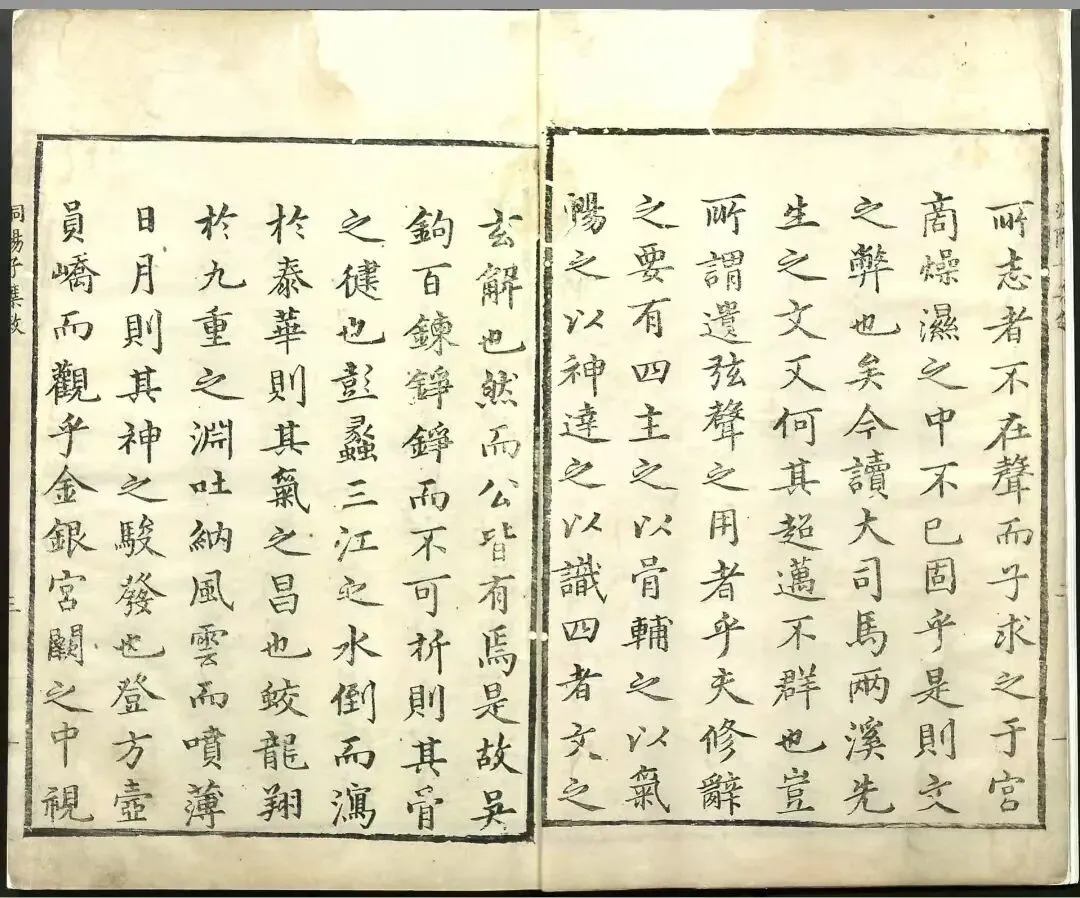 所志者不在聲而子求之于宮
商燥濕之中不已固乎是則文
之弊也矣今讀大司馬兩溪先
生之文又何其超邁不群也豈
所謂遺弦聲之用者乎夫修辭
之要有四主之以骨輔之以氣
暢之以神達之以識四者文之
玄解也然而公皆有焉是故吳
鉤百鍊錚錚而不可折則其骨
之健也彭蠡三江之水倒而瀉
於泰華則其氣之昌也鮫龍翔
於九重之淵吐納風雲而噴薄
日月則其神之駿發也登方壺
員嶠而觀乎金銀宮闕之中視
洞陽子集敘
三